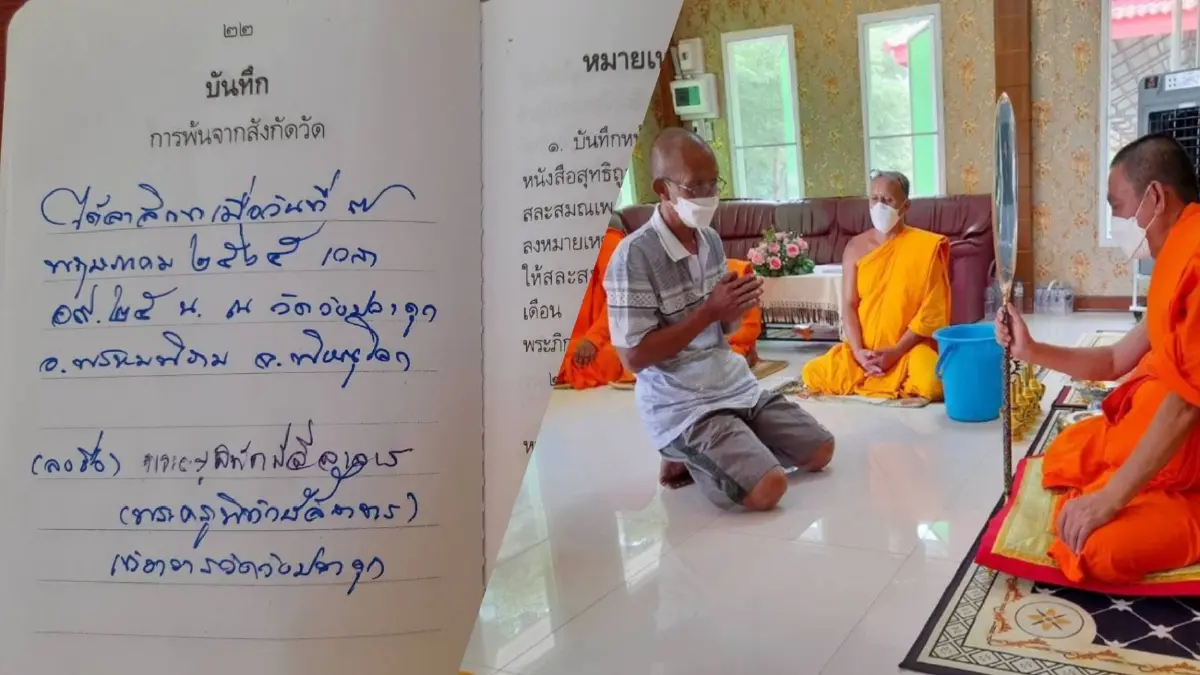 ๒๒
บันทึก
การพ้นจากสังกัดวัด
ได้ลาสิกขาเมื่อวันที่ ๗
พฤษภาคม ๒๕๖๕ เวลา
๑๙.๒๕ น. ณ วัดวังปลาดุก
อ.พรหมพิราม จ.พิษณุโลก
(ลงชื่อ)
เจ้าอาวาสวัดวังปลาดุก
หมายเห
๑. บันทึกห
หนังสือสุทธิ
สละสมณเพ
ลงหมายเห
ให้สละสม
เดือน
พระภิก